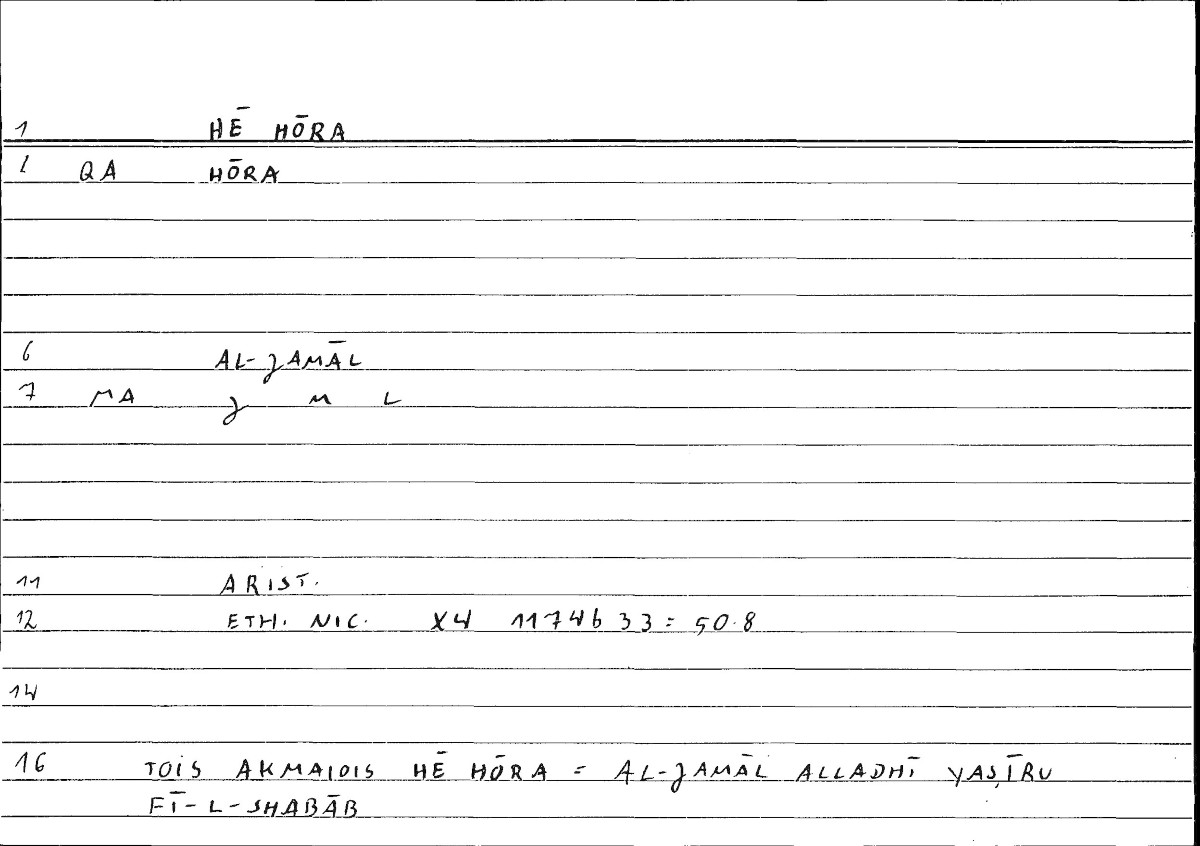 1 HĒ HŌRA
2 QA HŌRA
6 AL-JAMĀL
7 MA J M L
11 ARIST.
12 ETH. NIC. X4 1174b 33 = 50.8
14
16 TOIS AKMAIOIS HĒ HŌRA = AL-JAMĀL ALLADHĪ YAṢĪRU
FĪ-L-SHABĀB